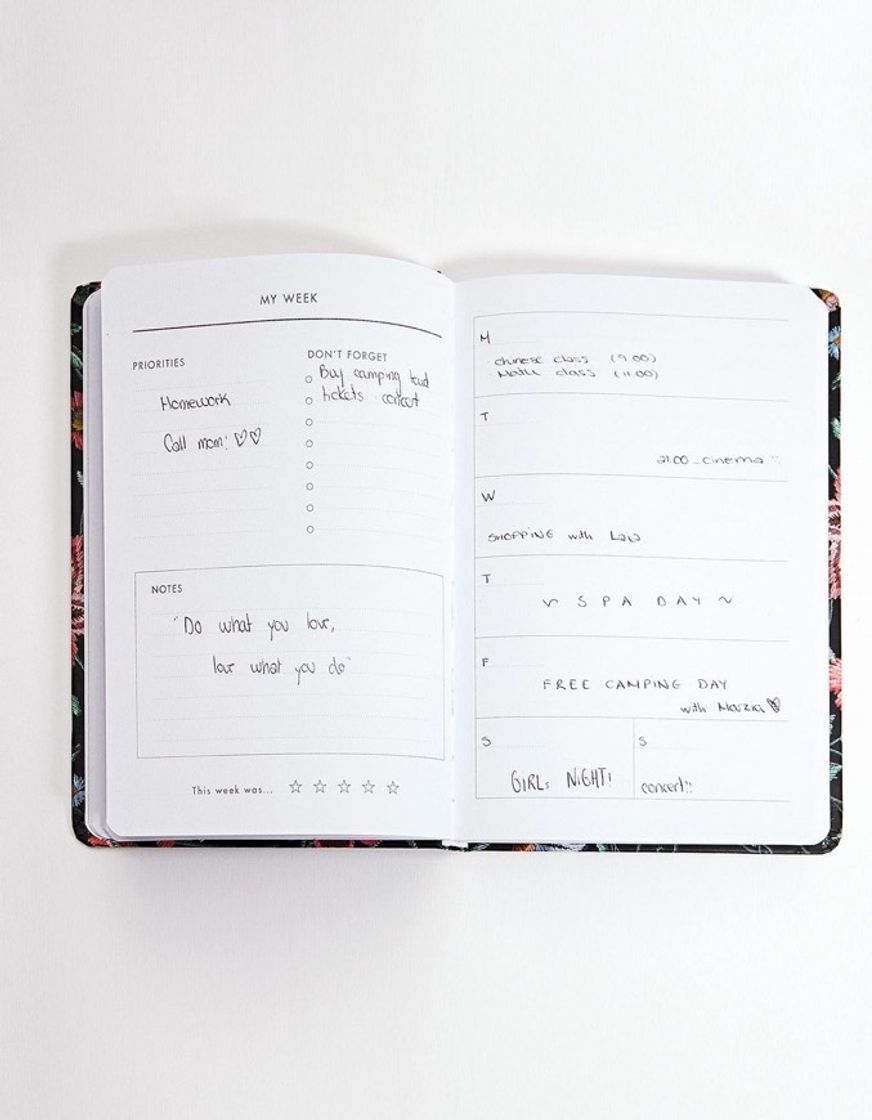 MY WEEK
PRIORITIES
Homework
Call mom! ♡♡
DON'T FORGET
Buy camping
tickets concert
NOTES
"Do what you love,
love what you do"
This week was... ☆ ☆ ☆ ☆ ☆
M
chinese class (9.00)
Math class (11.00)
T
21.00_cinema
W
SHOPPING with
T
~ SPA DAY ~
F
FREE CAMPING DAY
with Marzia
S
GIRLS NIGHT!
S
concert!!